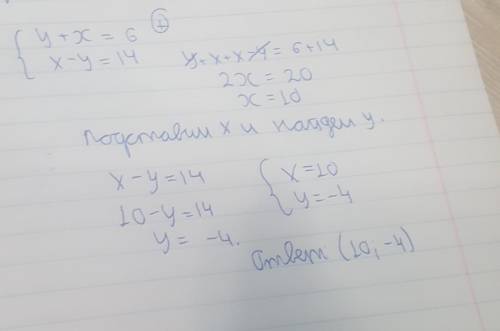 y + x = 6
x - y = 14
y + x + x - y = 6 + 14
2x = 20
x = 10
подставим x и найдем y.
x - y = 14
10 - y = 14
y = -4.
x = 10
y = -4
ответ (10; -4)